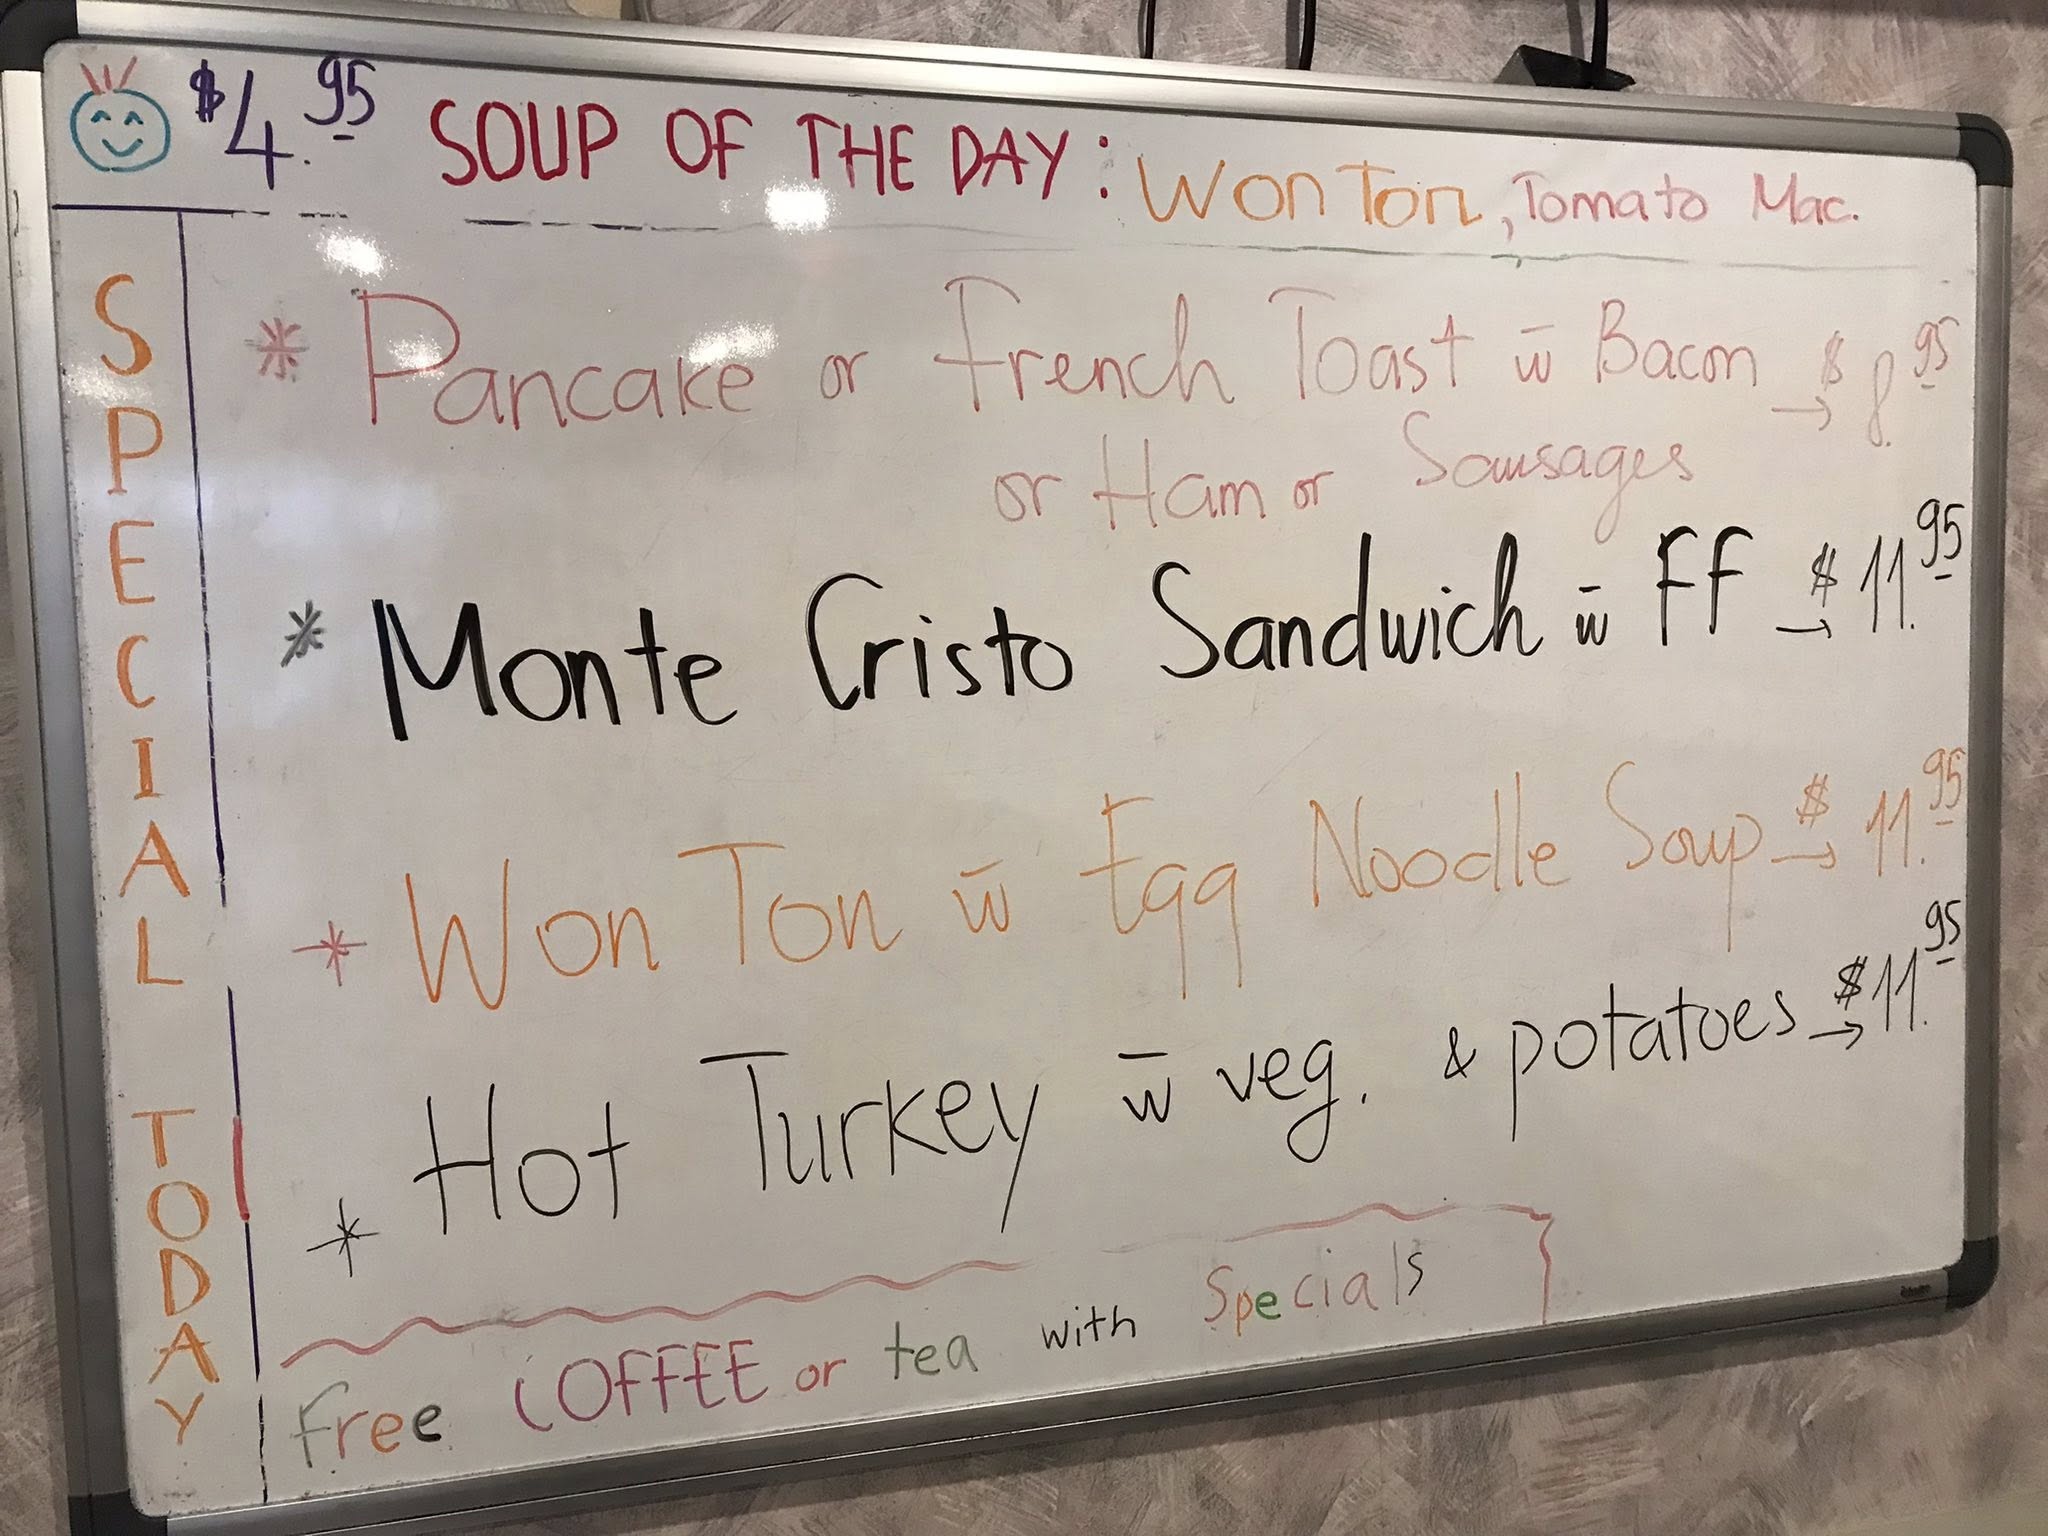 $4.95 SOUP OF THE DAY: WON TON, Tomato Mac.
SPECIAL TODAY
* Pancake or French Toast w̄ Bacon → $8.95
or Ham or Sausages
* Monte Cristo Sandwich w̄ FF → $11.95
* Won Ton w̄ Egg Noodle Soup → $11.95
* Hot Turkey w̄ veg. & potatoes → $11.95
free COFFEE or tea with Specials